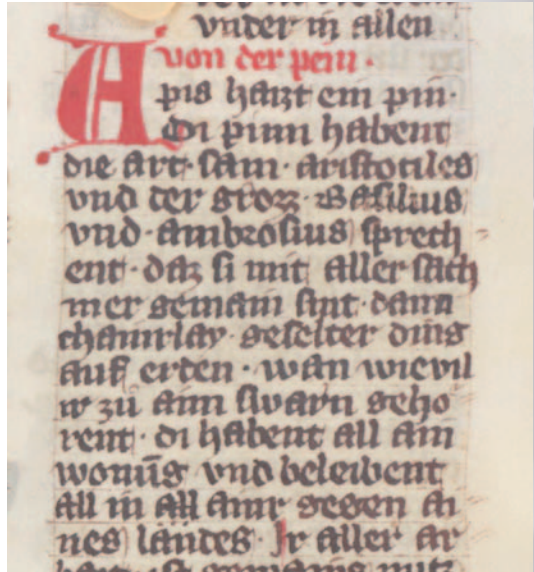 vnder in allen
von der pein ·
Apis haizt ein pin·
Di pinn habent
die art· sam· aristotiles
vnd der groz· Basilius
vnd· ambrosius sprech
ent· daz si mit aller sach
mer gemain sint· dann
chainrlay· geselter ding
auf erden · wan wievil
ir zů aim swarn geho
rent· di habent all ain
wonūg vnd beleibent
all in all ainr gegen ai
nes landes· Ir aller ar